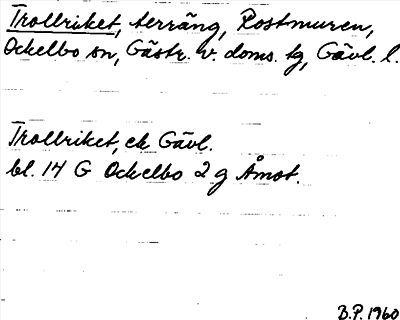 Trollriket, terräng, Rostmuren,
Ockelbo sn, Gästr. v. doms. tg, Gävl. l.
Trollriket, ek Gävl.
bl. 14 G Ockelbo 2 g Åmot.
B.P. 1960